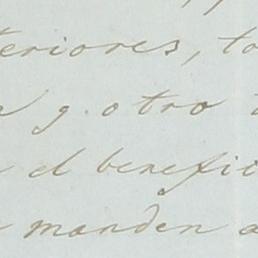 teriores, to
g. otro
el benefici
manden a